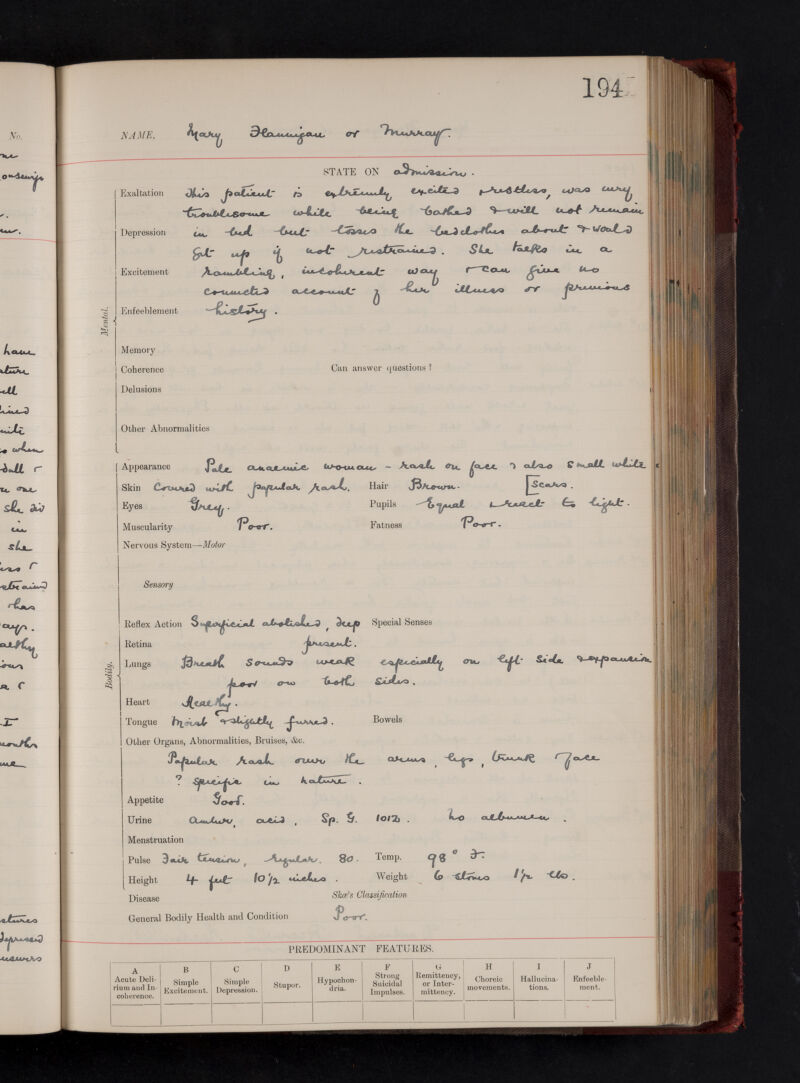 194
NAME. Mary Flannigan or Murray.
STATE ON admission.
Mental.
Exaltation This patient is extremely excited & restless, was very
troublesome while being bathed & will not remain
Depression in bed but tosses the bedclothes about & would
get up if not restrained. She talks in a
Excitement rambling, incoherent way & can give no
connected account of her illness or previous
Enfeeblement history.
Memory
Coherence Can answer questions ?
Delusions
Other Abnormalities
Bodily.
Appearance Pale anaemic woman - rash on face & also small white
Skin Covered with papular rash. Hair Brown. [scars.
Eyes Grey. Pupils Equal & react to light.
Muscularity Poor. Fatness Poor.
Nervous System—Motor
Sensory
Reflex Action Superficial abolished, deep Special Senses
Retina present.
Lungs Breath sounds weak especially on left side & expansion
poor on both sides.
Heart Healthy.
Tongue Moist & slightly furred. Bowels
Other Organs, Abnormalities, Bruises, &c.
Papular rash over the arms, legs, trunk & face
? specific in nature.
Appetite Good.
Urine amber, acid, Sp. G. 1012. no albumen.
Menstruation
Pulse Fair tension, regular. 80. Temp. 98° F.
Height 4 feet 10 1/2 inches. Weight 6 stones 1 1/2 lbs.
Disease Skae's Classification
General Bodily Health and Condition Poor.
PREDOMINANT FEATURES.
A B C D E F G H I J
Acute Delirium and Incoherence. Simple Excitement. Simple Depression. Stupor. Hypochondria. Strong Suicidal Impulses. Remittency, or Intermittency. Choreic movements. Hallucinations. Enfeeblement.